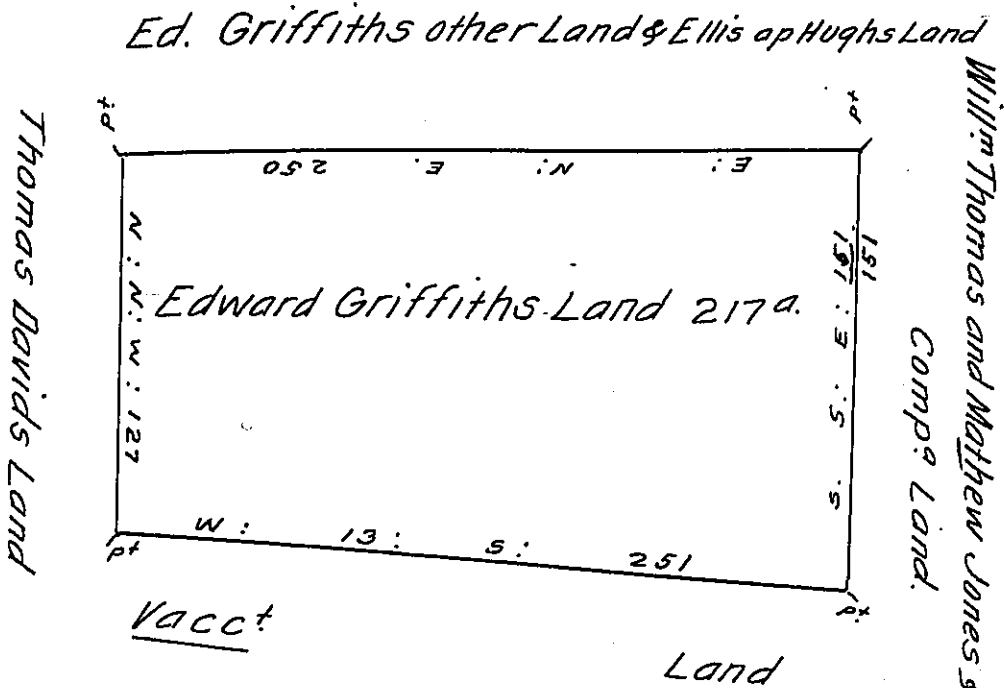 Ed. Griffiths other Land & Ellis ap Hughs Land
pt
pt
E: N: E. 250
Thomas Davids Land
N: N: W: 127
Edward Griffiths Land 217 a.
S. S: E: 151
151
Will:m Thomas and Mathew Jones &
Comp.a Land.
W: 13: S: 251
pt
pt
Vacct
Land